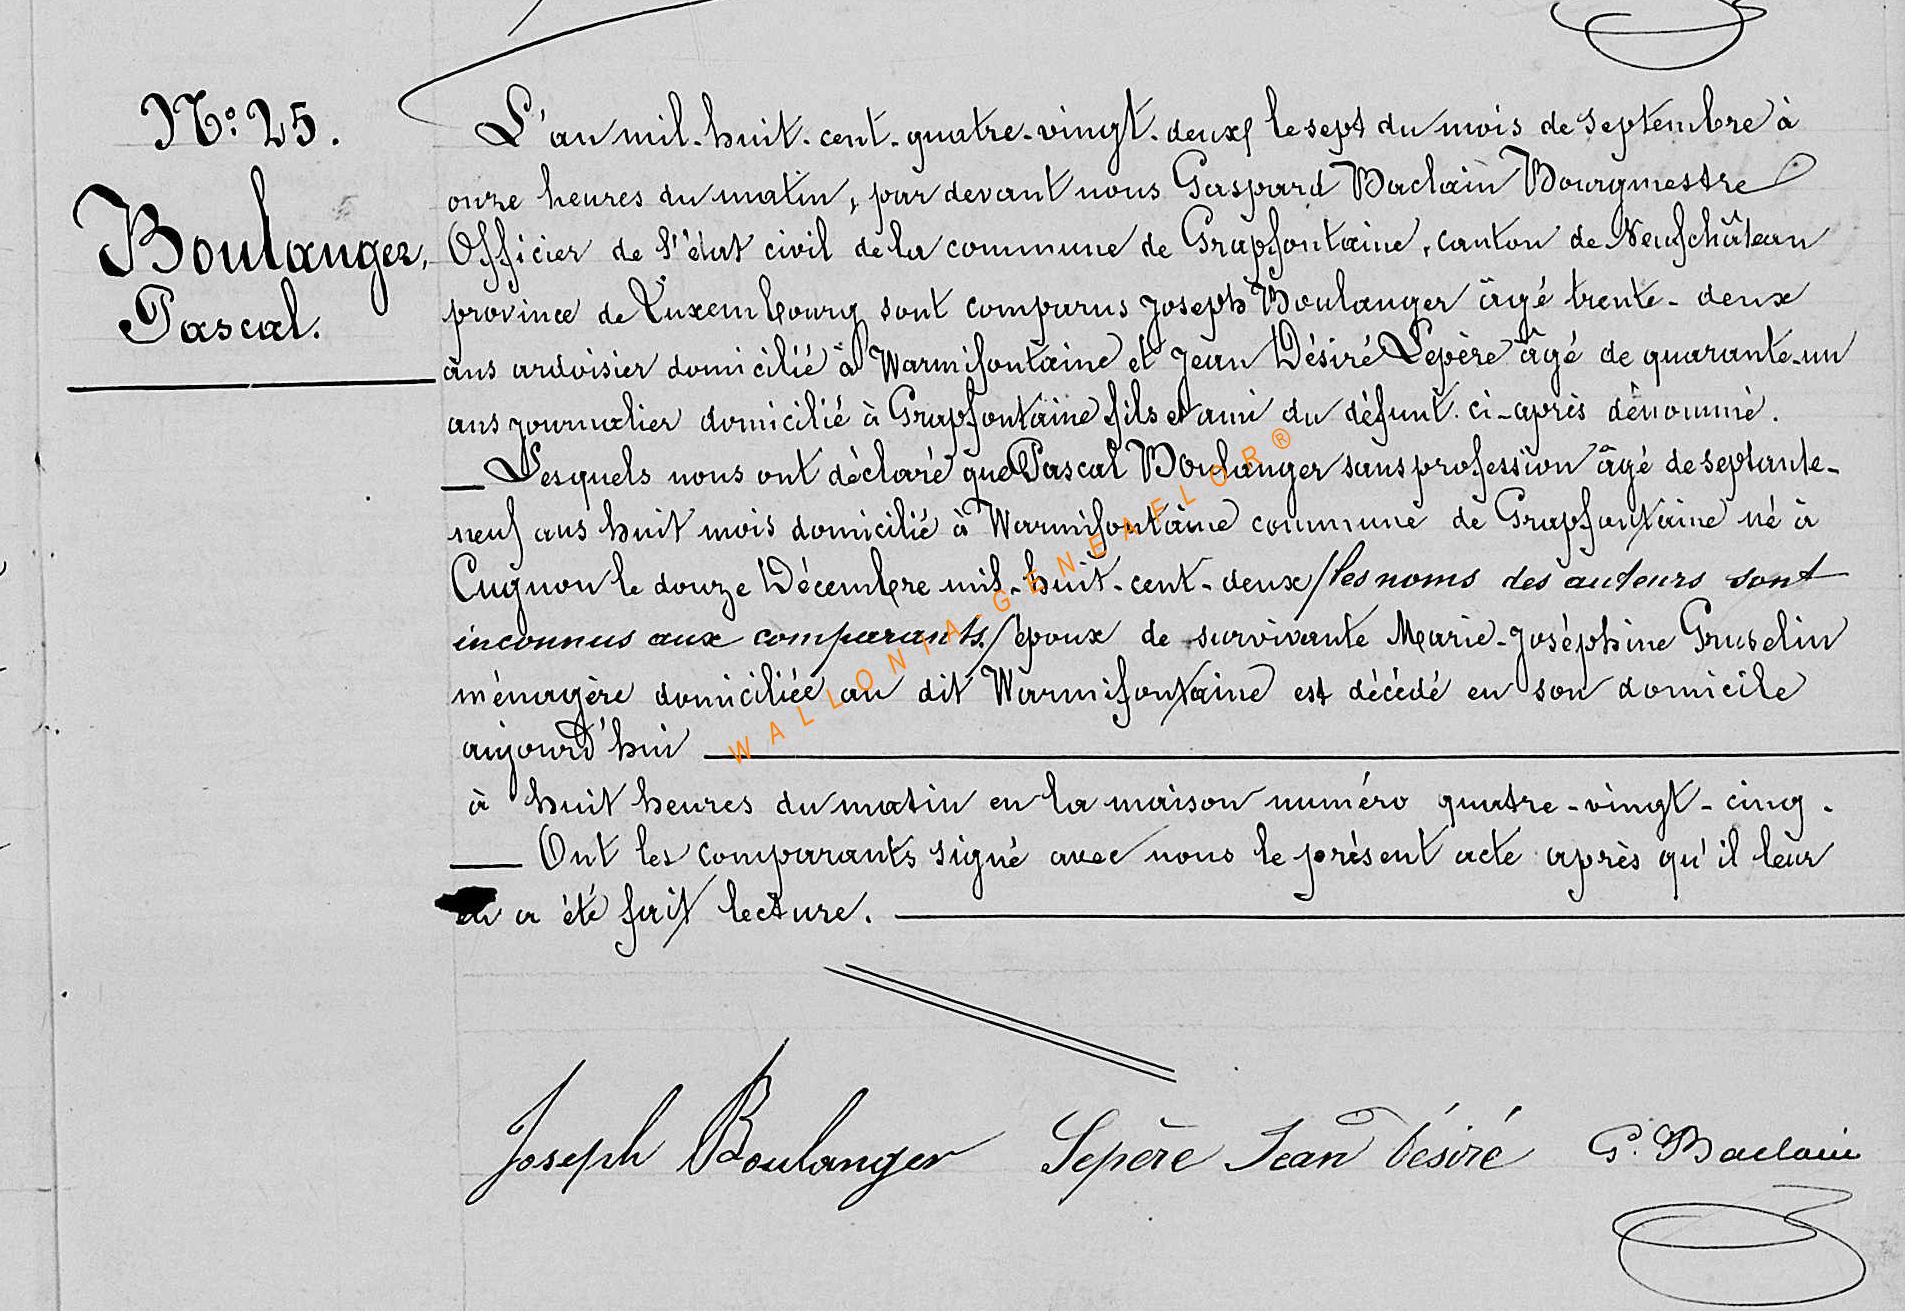 N° 25.
Boulanger,
Pascal.
L'an mil-huit-cent-quatre-vingt-deux, le sept du mois de Septembre à
onze heures du matin, par devant nous Gaspard Baclain Bourgmestre
Officier de l'état civil de la commune de Grapfontaine, canton de Neufchâteau
province de Luxembourg sont comparus Joseph Boulanger âgé trente-deux
ans ardoisier domicilié à Warmifontaine et Jean Désiré Lepère âgé de quarante-un
ans journalier domicilié à Grapfontaine fils et ami du défunt ci-après dénommé.
Lesquels nous ont déclaré que Pascal Boulanger sans profession âgé de septante-
neuf ans huit mois domicilié à Warmifontaine commune de Grapfontaine né à
Cugnon le douze Décembre mil-huit-cent-deux /les noms des auteurs sont
inconnus aux comparants/ époux de survivante Marie-Joséphine Gruselin
ménagère domiciliée au dit Warmifontaine est décédé en son domicile
aujourd'hui
à huit heures du matin en la maison numéro quatre-vingt-cinq.
Ont les comparants signé avec nous le présent acte après qu'il leur
en a été fait lecture.
Joseph Boulanger Lepère Jean Désiré G. Baclain
WALLONIA-GENEAFLOR®